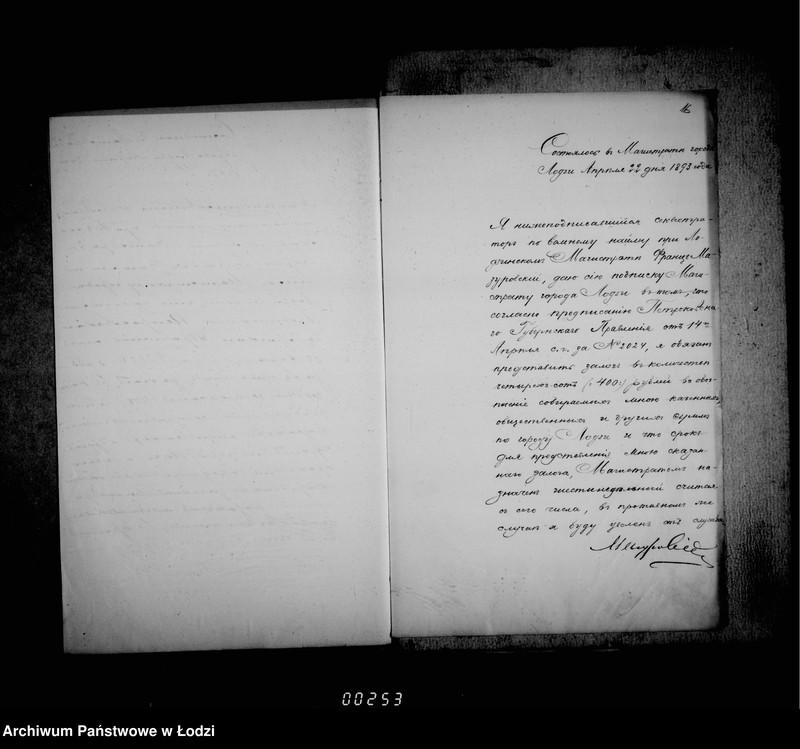 16
Состоялось въ Магистратѣ города
Лодзи Апрѣля 22 дня 1893 года
Я нижеподписавшійся секвестра-
торъ по вольному найму при Ло-
дзинскомъ Магистратѣ Францъ Ма-
зуровскій, даю сію подписку Маги-
страту города Лодзи въ томъ, что
согласно предписанію Петроковска-
го Губернскаго Правленія отъ 14го
Апрѣля с.г. за № 2024, я обязанъ
представить залогъ въ количествѣ
четырехсотъ (400) рублей въ обез-
печеніе собираемыхъ мною казенныхъ,
общественныхъ и другихъ суммъ
по городу Лодзи и что срокъ
для представленія мною сказан-
наго залога, Магистратомъ на-
значенъ шестинедѣльный считая
съ сего числа, въ противномъ же
случаѣ я буду уволенъ отъ службы
Мазуровскій
00253
Archiwum Państwowe w Łodzi